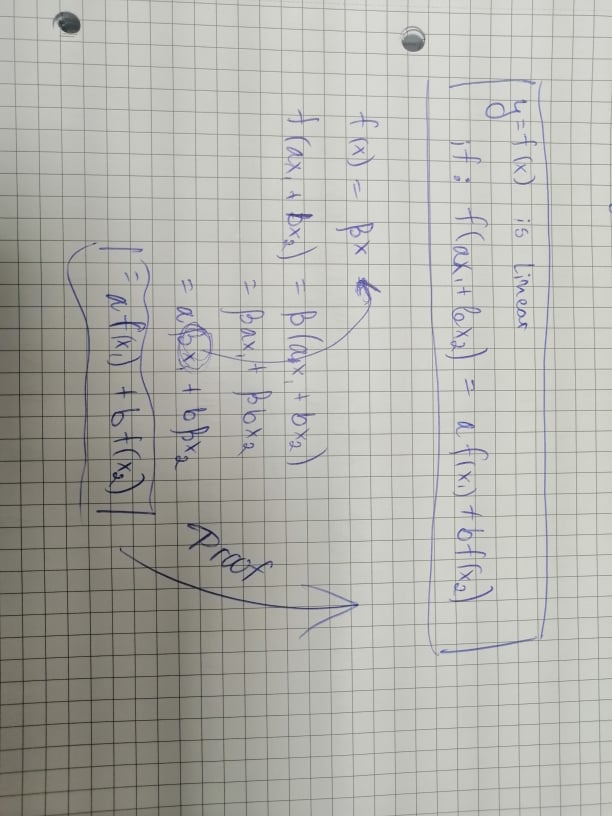 y = f(x) is linear
if : f(ax₁ + bx₂) = a f(x₁) + b f(x₂)
f(x) = βx
f(ax₁ + bx₂) = β(ax₁ + bx₂)
= βax₁ + βbx₂
= aβx₁ + bβx₂
= a f(x₁) + b f(x₂)
Proof